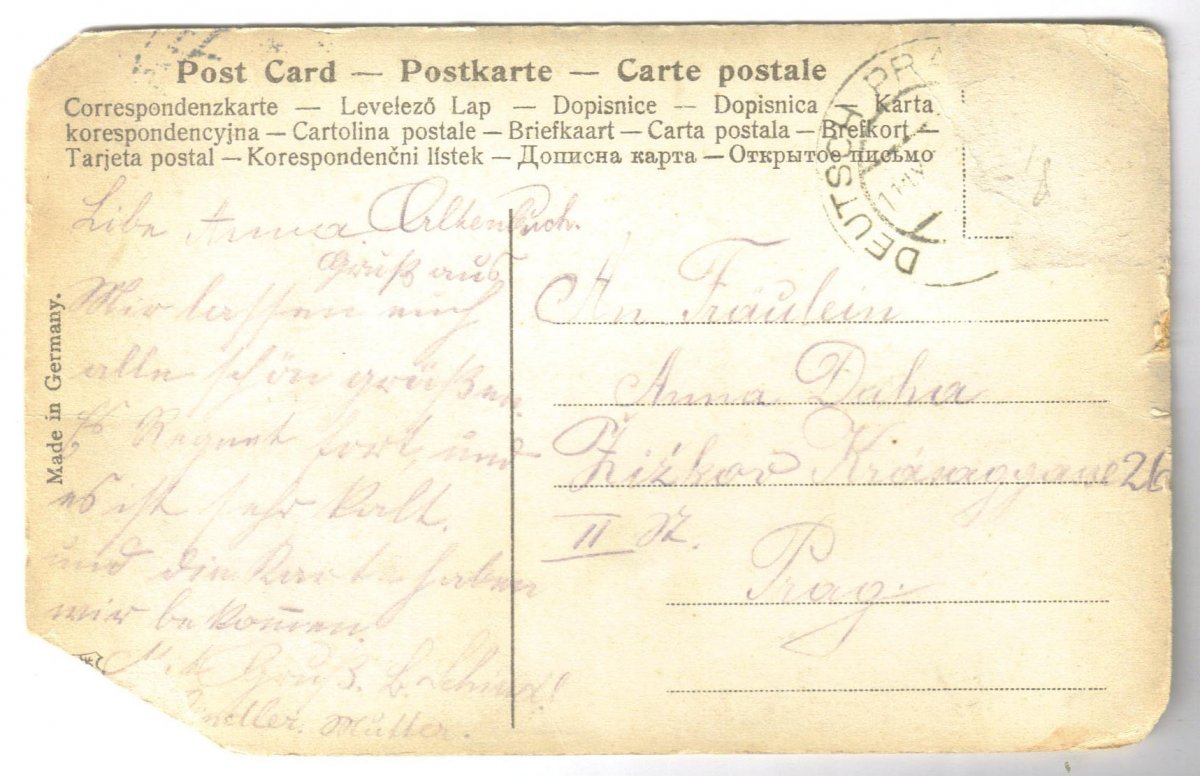 Post Card — Postkarte — Carte postale
Correspondenzkarte — Levelező Lap — Dopisnice — Dopisnica — Karta
korespondencyjna — Cartolina postale — Briefkaart — Carta postala — Brefkort —
Tarjeta postal — Korespondenční lístek — Дописна карта — Открытое письмо
DEUTSCH PRA
Made in Germany.
Libe Anna Altenbuch.
Gruß aus
Wir lassen euch
alle schön grüßen.
Es Regnet fort, und
es ist sehr kalt.
und die Karte haben
wir bekom̄en.
Gruß
Mutter.
An Fräulein
Anna Daha
Žižkov 26
II St.
Prag.